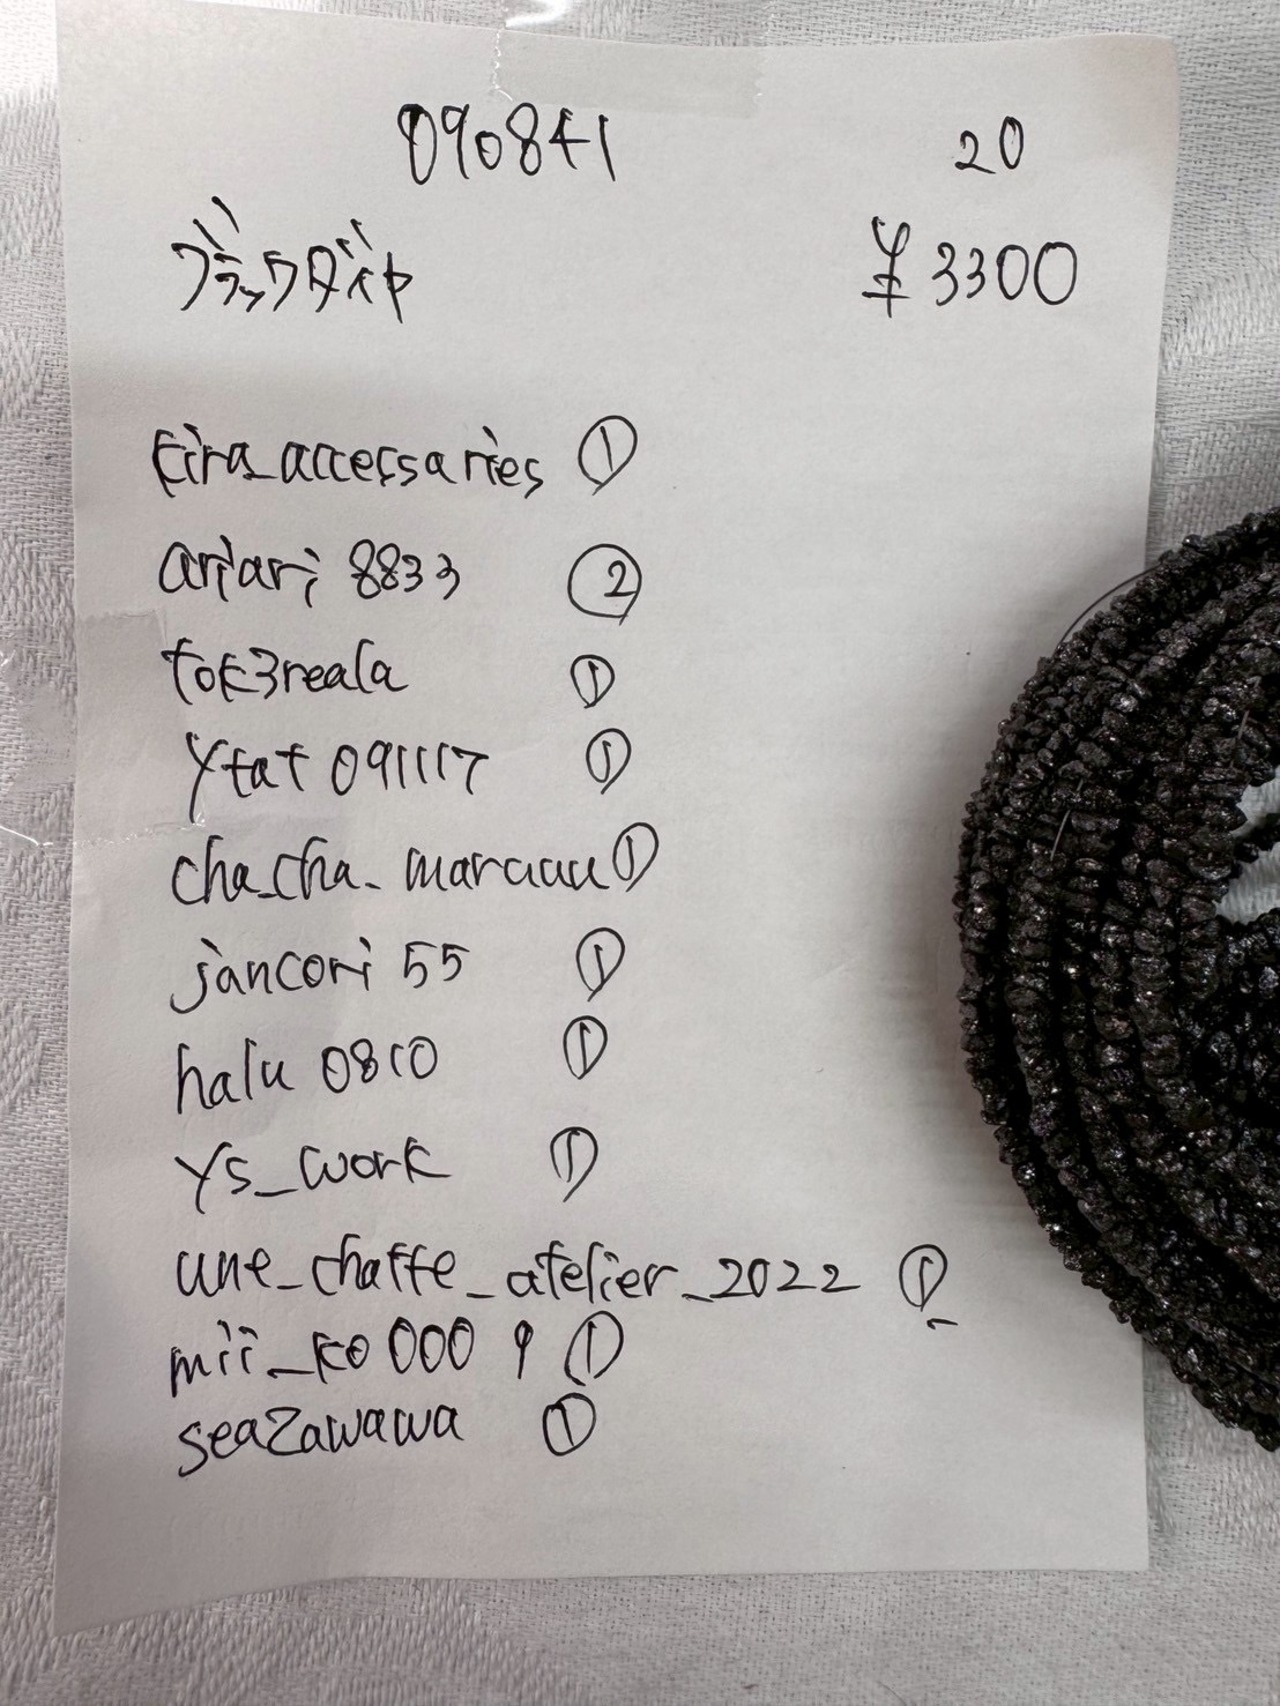 090841 20
ブラックダイヤ ¥3300
kira_accessaries ①
ariari 8833 ②
tok3reala ①
ytat 091117 ①
cha_cha_maruuu ①
jancori 55 ①
halu 0810 ①
ys_work ①
une_chatte_atelier_2022 ①
mii_ko 000 9 ①
seazawawa ①